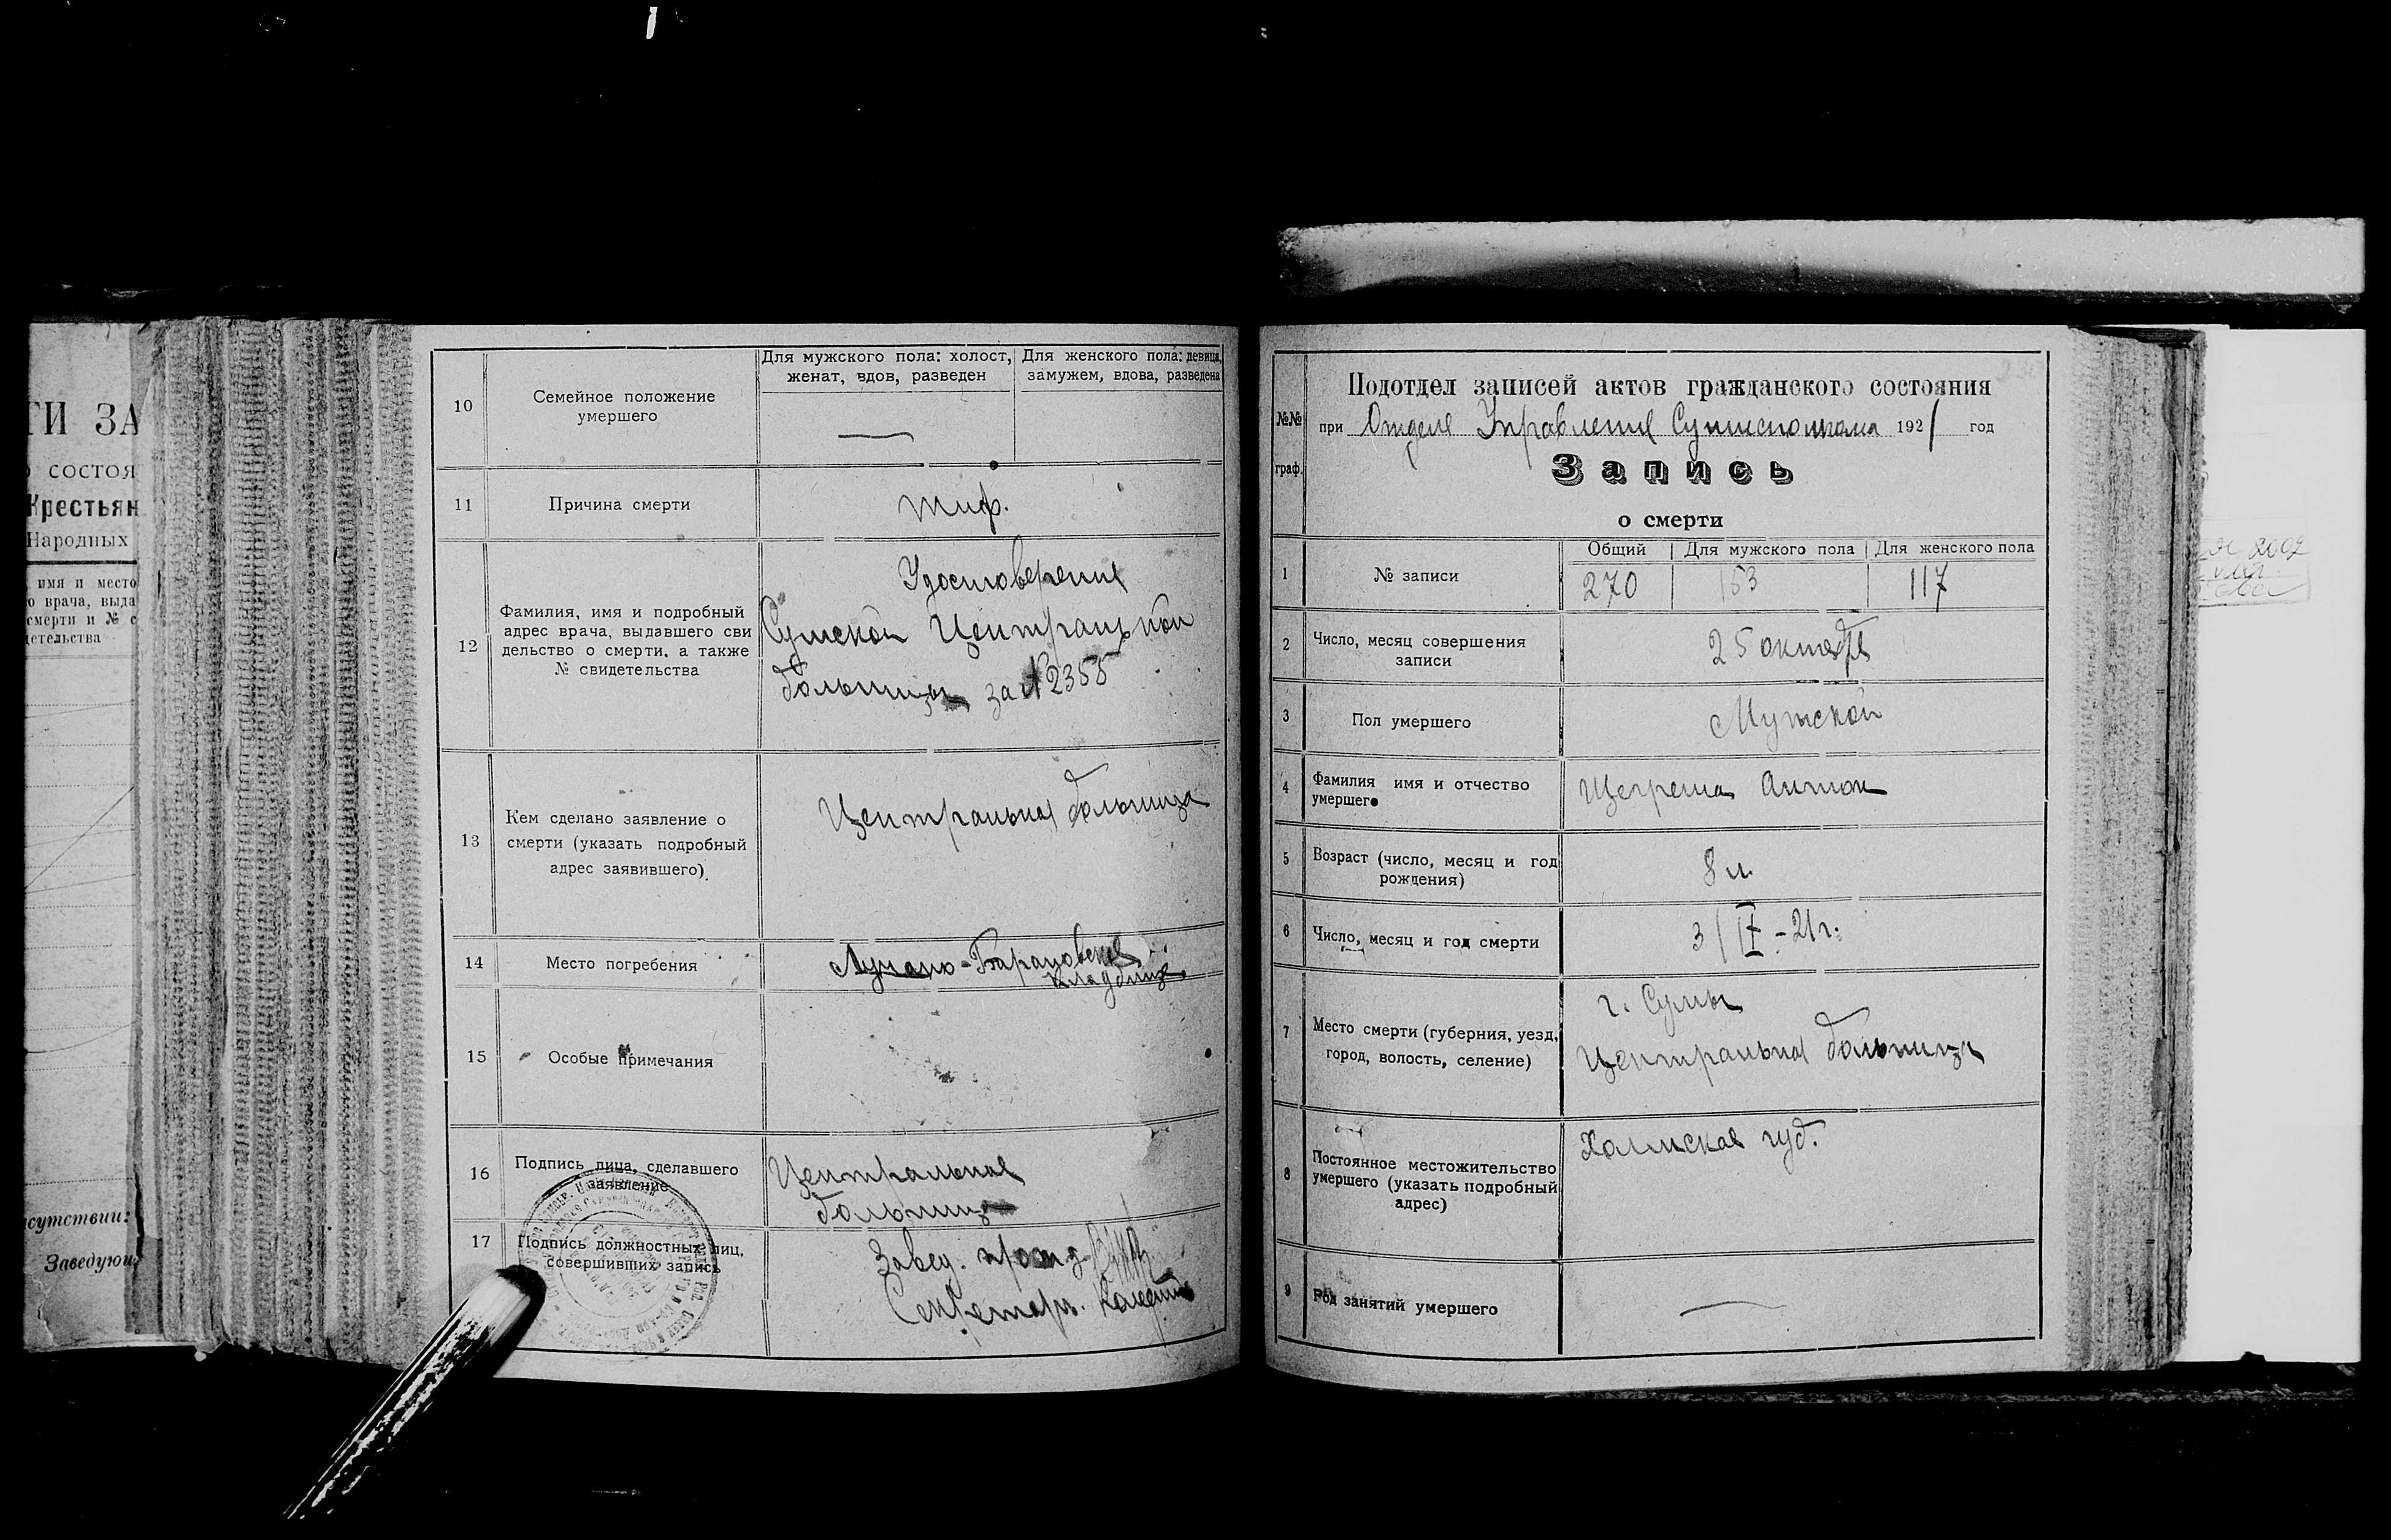 ТИ ЗА
о состоя
Крестьян
Народных
имя и место
о врача, выда
смерти и № с
детельства
сутствии:
Заведующ
10
Семейное положение
умершего
Для мужского пола: холост,
женат, вдов, разведен
Для женского пола: девица,
замужем, вдова, разведена
—
11
Причина смерти
Тиф.
12
Фамилия, имя и подробный
адрес врача, выдавшего сви
дельство о смерти, а также
№ свидетельства
Удостоверение
Сумской Центральной
больницы за №2355
13
Кем сделано заявление о
смерти (указать подробный
адрес заявившего)
Центральная больница
14
Место погребения
Лучано-Барановское
кладбище
15
Особые примечания
16
Подпись лица, сделавшего
заявление
Центральная
больница
17
Подпись должностных лиц,
совершивших запись
Завед.
Секретарь.
№№
граф.
Подотдел записей актов гражданского состояния
при Отделе Управления Сумисполкома 1921 год
Запись
о смерти
1
№ записи
Общий
Для мужского пола
Для женского пола
270
153
117
2
Число, месяц совершения
записи
25 октября
3
Пол умершего
Мужской
4
Фамилия имя и отчество
умершего
Щегреша Антон
5
Возраст (число, месяц и год
рождения)
8 л.
6
Число, месяц и год смерти
3/IX-21г.
7
Место смерти (губерния, уезд,
город, волость, селение)
г. Сумы
Центральная больница
8
Постоянное местожительство
умершего (указать подробный
адрес)
Холмская губ.
9
Род занятий умершего
—
2002